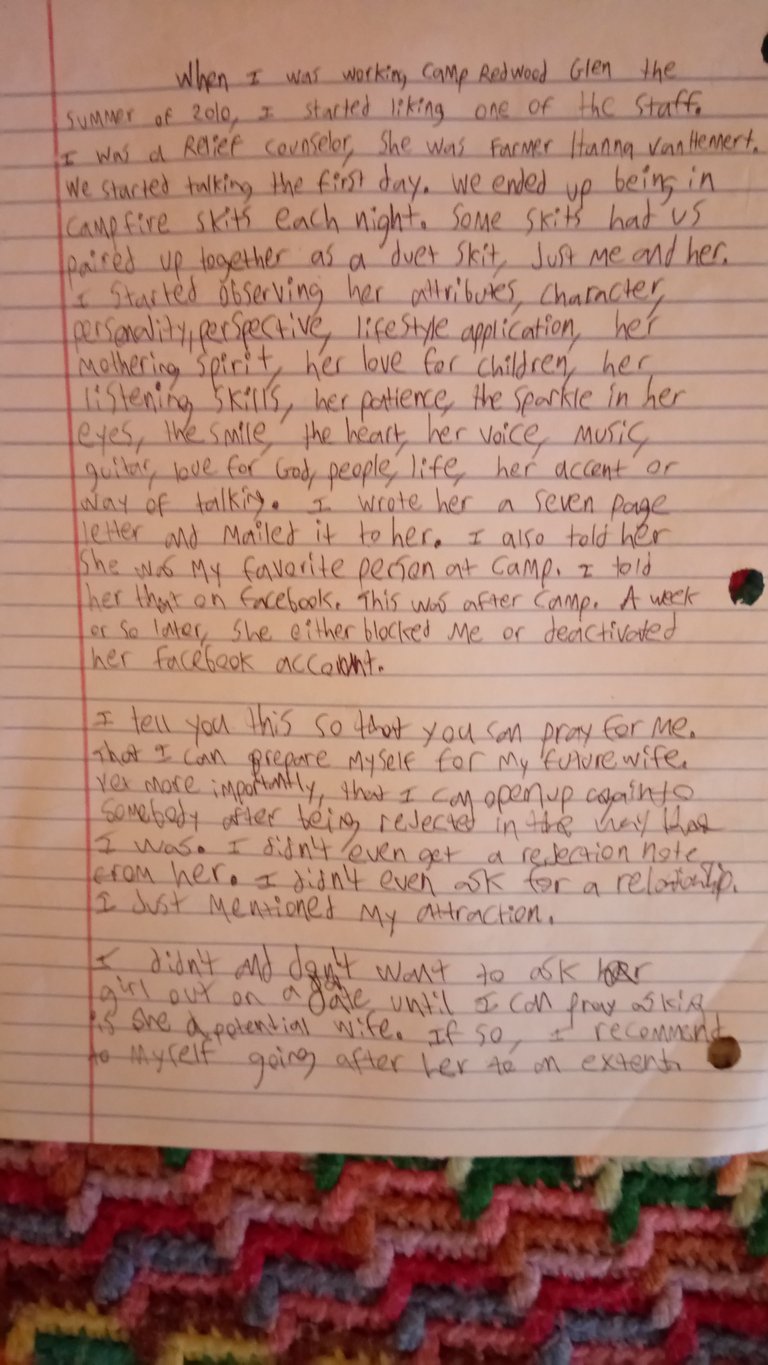 When I was working Camp Redwood Glen the
summer of 2010, I started liking one of the staff.
I was a Relief counselor, She was Farmer Hanna VanHemert.
We started talking the first day. We ended up being in
campfire skits each night. Some skits had us
paired up together as a duet skit, Just me and her.
I started observing her attributes, character,
personality, perspective, lifestyle application, her
mothering spirit, her love for children, her
listening skills, her patience, the sparkle in her
eyes, the smile, the heart, her voice, music,
guitar, love for God, people, life, her accent or
way of talking. I wrote her a seven page
letter and mailed it to her. I also told her
she was my favorite person at camp. I told
her that on facebook. This was after camp. A week
or so later, she either blocked me or deactivated
her facebook account.
I tell you this so that you can pray for me.
That I can prepare myself for my future wife.
Yet more importantly, that I can open up again to
somebody after being rejected in the way that
I was. I didn't even get a rejection note
from her. I didn't even ask for a relationship.
I Just mentioned my attraction.
I didn't and don't want to ask
girl out on a date until I can pray asking
is she a potential wife. If so, I recommend
to myself going after her to an extent.